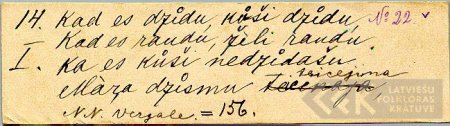 14. Kad es dzīdu, kūši dzīdu, № 22. v
I Kad es raudu, žēli raudu.
I. Ka es kūši nedzīdašu.
triceļuna
Māza dzismu
N.N. Vergale. = 156.
LATVIEŠU
FOLKLORAS
KRĀTUVE